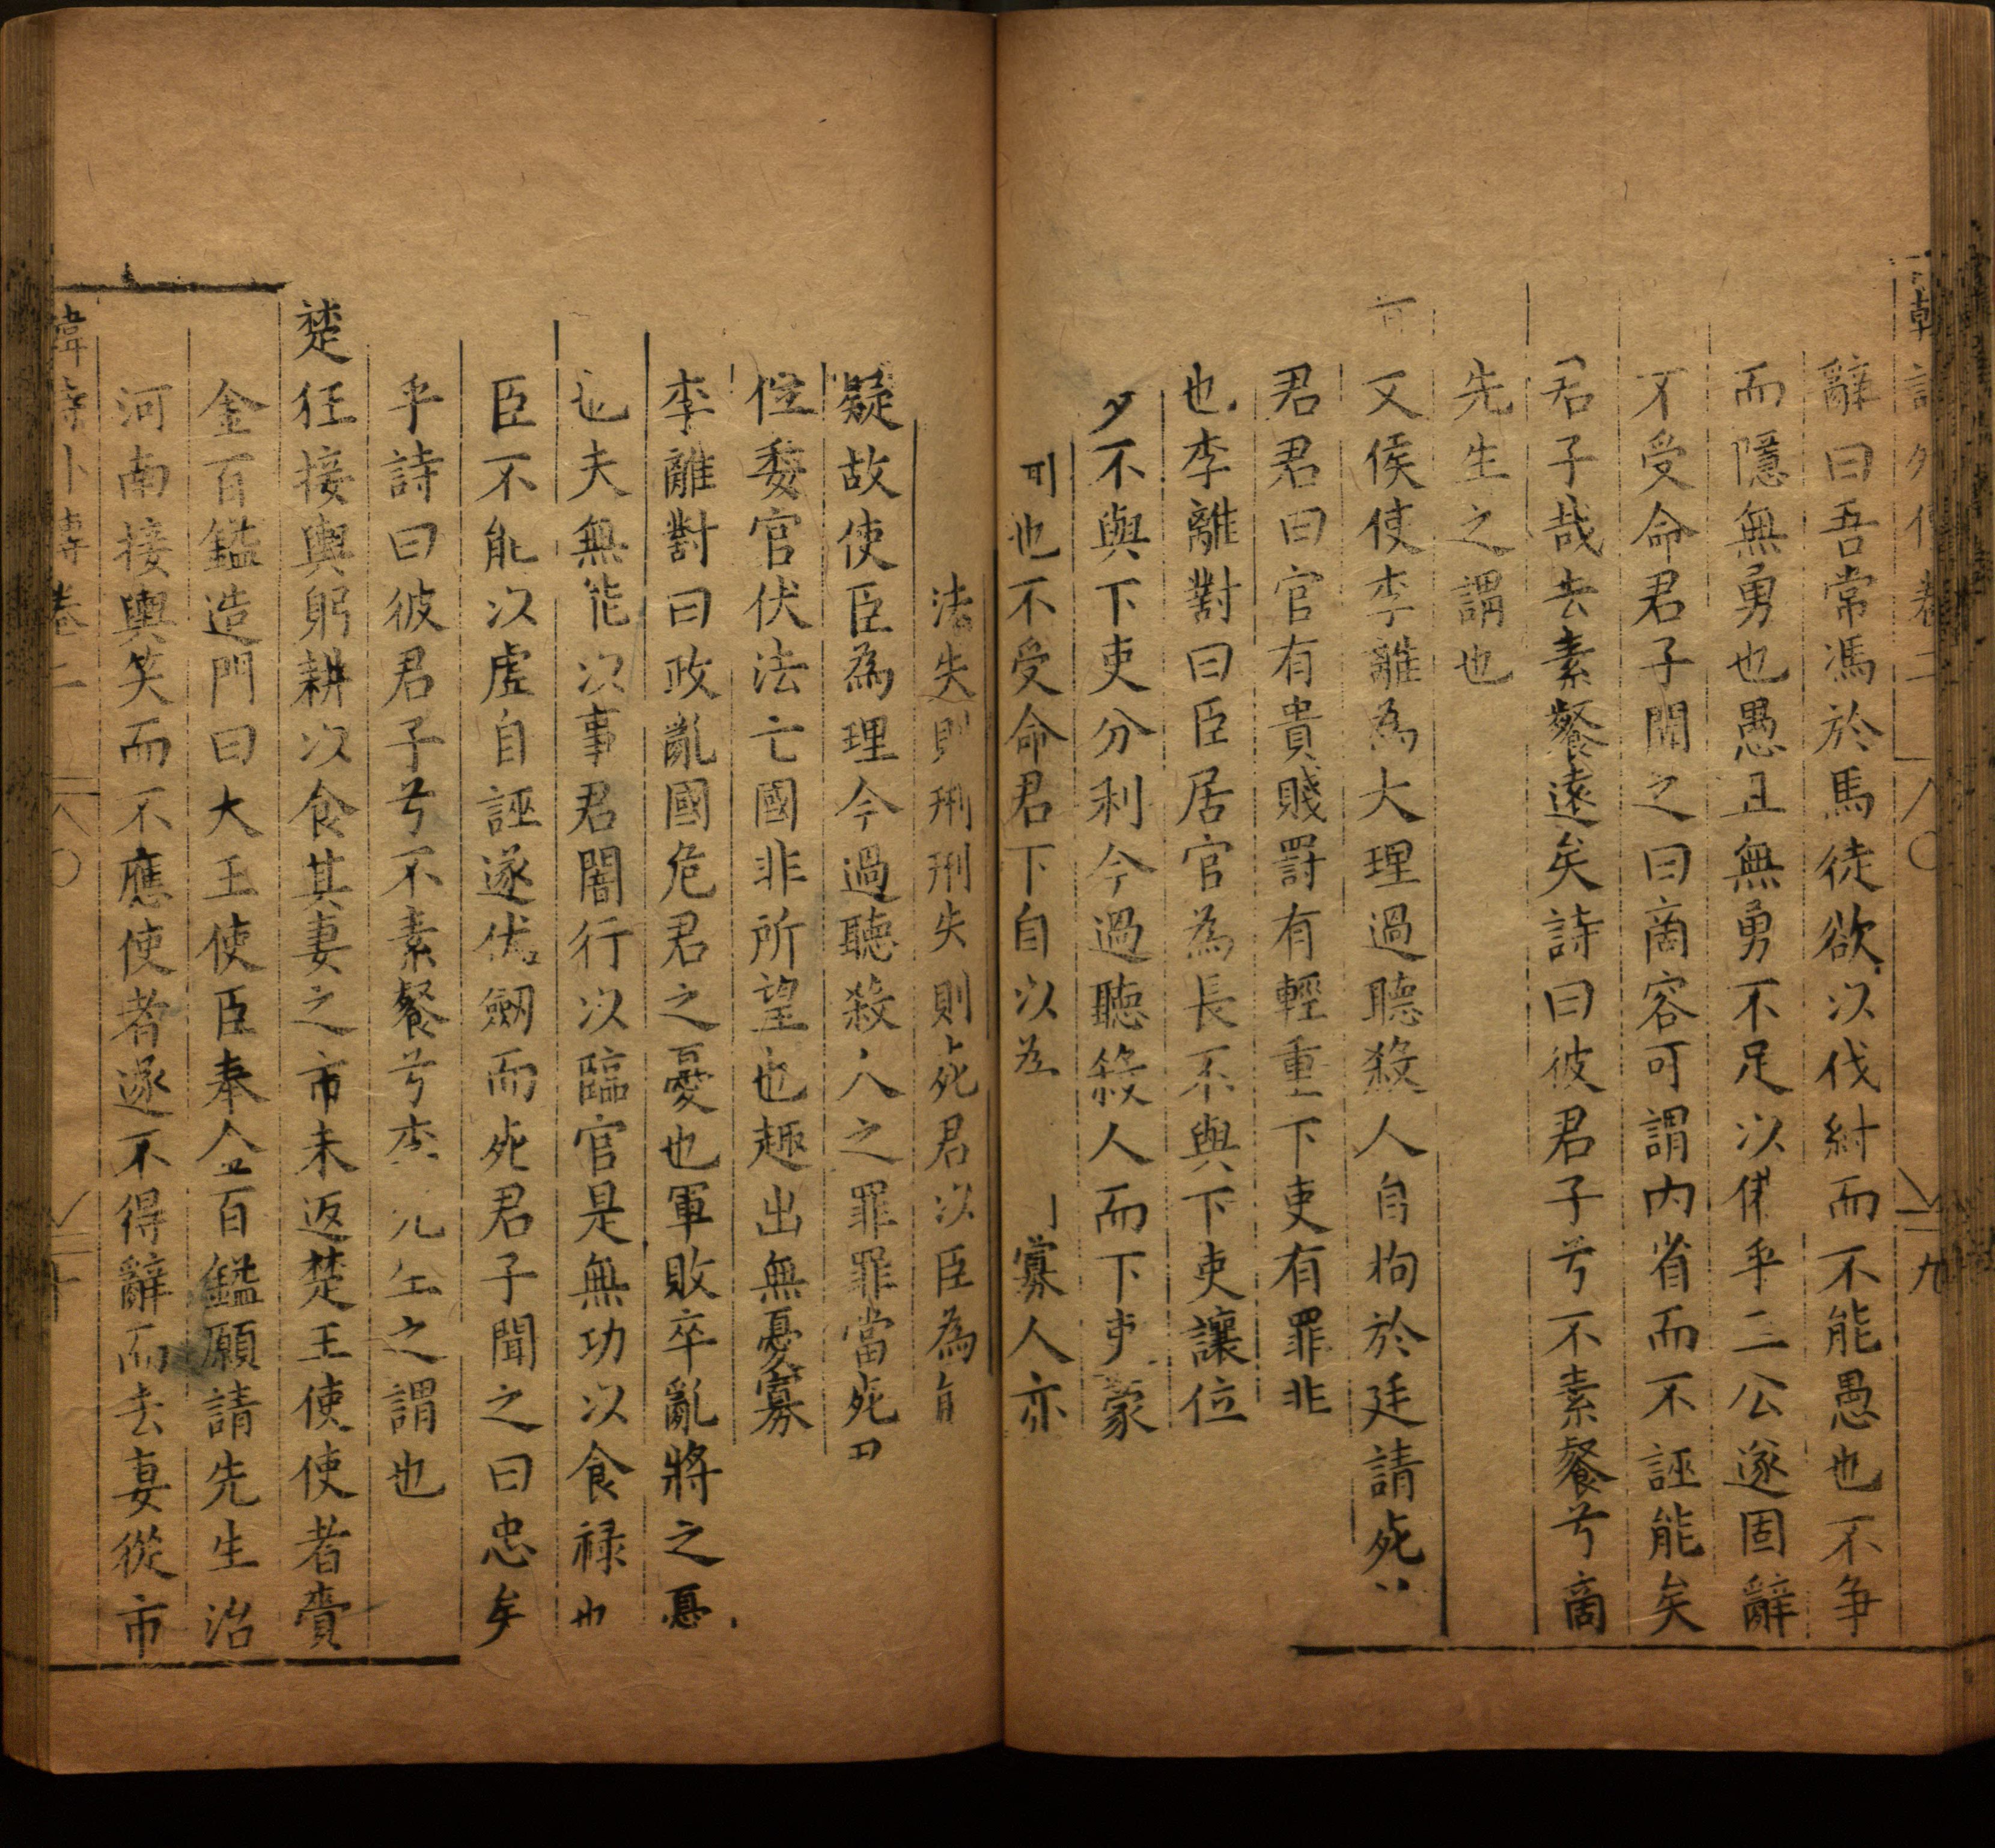 辭曰吾常馮於馬徒欲以伐紂而不能愚也不争
而隱無勇也愚且無勇不足以備乎三公遂固辭
不受命君子聞之曰商容可謂内省而不誣能矣
君子哉去素餐遠矣詩曰彼君子兮不素餐兮商
先生之謂也
文侯使李離為大理過聽殺人自拘於廷請死
君君曰官有貴賤罰有輕重下吏有罪非
也李離對曰臣居官為長不與下吏讓位
不與下吏分利今過聽殺人而下吏蒙
也不受命君下自以為 寡人亦
法失則刑刑失則死君以臣為
疑故使臣為理今過聽殺人之罪罪當死
位委官伏法亡國非所望也趣出無憂寡
李離對曰政亂國危君之憂也軍敗卒亂將之憂
也夫無能以事君闇行以臨官是無功以食禄也
臣不能以虚自誣遂伏劒而死君子聞之曰忠矣
乎詩曰彼君子兮不素餐兮李先生之謂也
楚狂接輿躬耕以食其妻之市未返楚王使使者賫
金百鎰造門曰大王使臣奉金百鎰願請先生治
河南接輿笑而不應使者遂不得辭而去妻從市